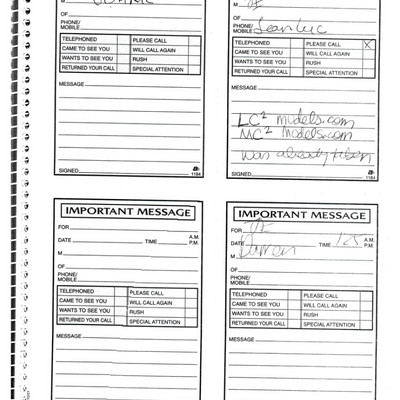 M
OF
PHONE/
MOBILE
TELEPHONED PLEASE CALL
CAME TO SEE YOU WILL CALL AGAIN
WANTS TO SEE YOU RUSH
RETURNED YOUR CALL SPECIAL ATTENTION
MESSAGE
SIGNED
1184
M
OF
PHONE/
MOBILE Jean Luc
TELEPHONED PLEASE CALL X
CAME TO SEE YOU WILL CALL AGAIN
WANTS TO SEE YOU RUSH
RETURNED YOUR CALL SPECIAL ATTENTION
MESSAGE
LC² models.com
MC² models.com
was already taken
SIGNED
1184
IMPORTANT MESSAGE
FOR
DATE TIME A.M.
P.M.
M
OF
PHONE/
MOBILE
TELEPHONED PLEASE CALL
CAME TO SEE YOU WILL CALL AGAIN
WANTS TO SEE YOU RUSH
RETURNED YOUR CALL SPECIAL ATTENTION
MESSAGE
IMPORTANT MESSAGE
FOR
DATE TIME A.M.
P.M.
M
OF
PHONE/
MOBILE
TELEPHONED PLEASE CALL
CAME TO SEE YOU WILL CALL AGAIN
WANTS TO SEE YOU RUSH
RETURNED YOUR CALL SPECIAL ATTENTION
MESSAGE